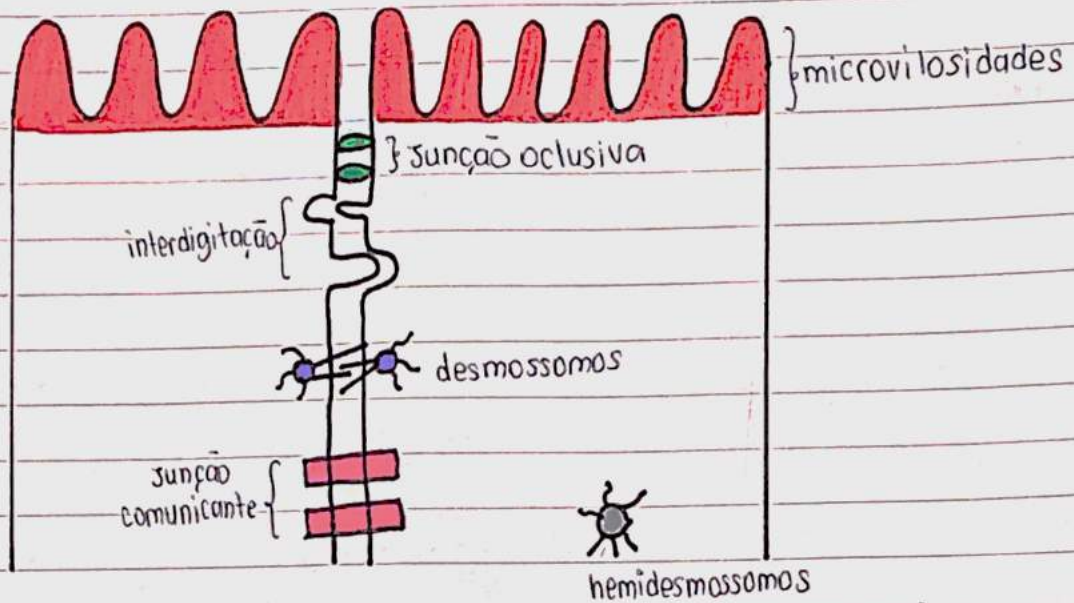 microvilosidades
junção oclusiva
interdigitação
desmossomos
junção
comunicante
hemidesmossomos